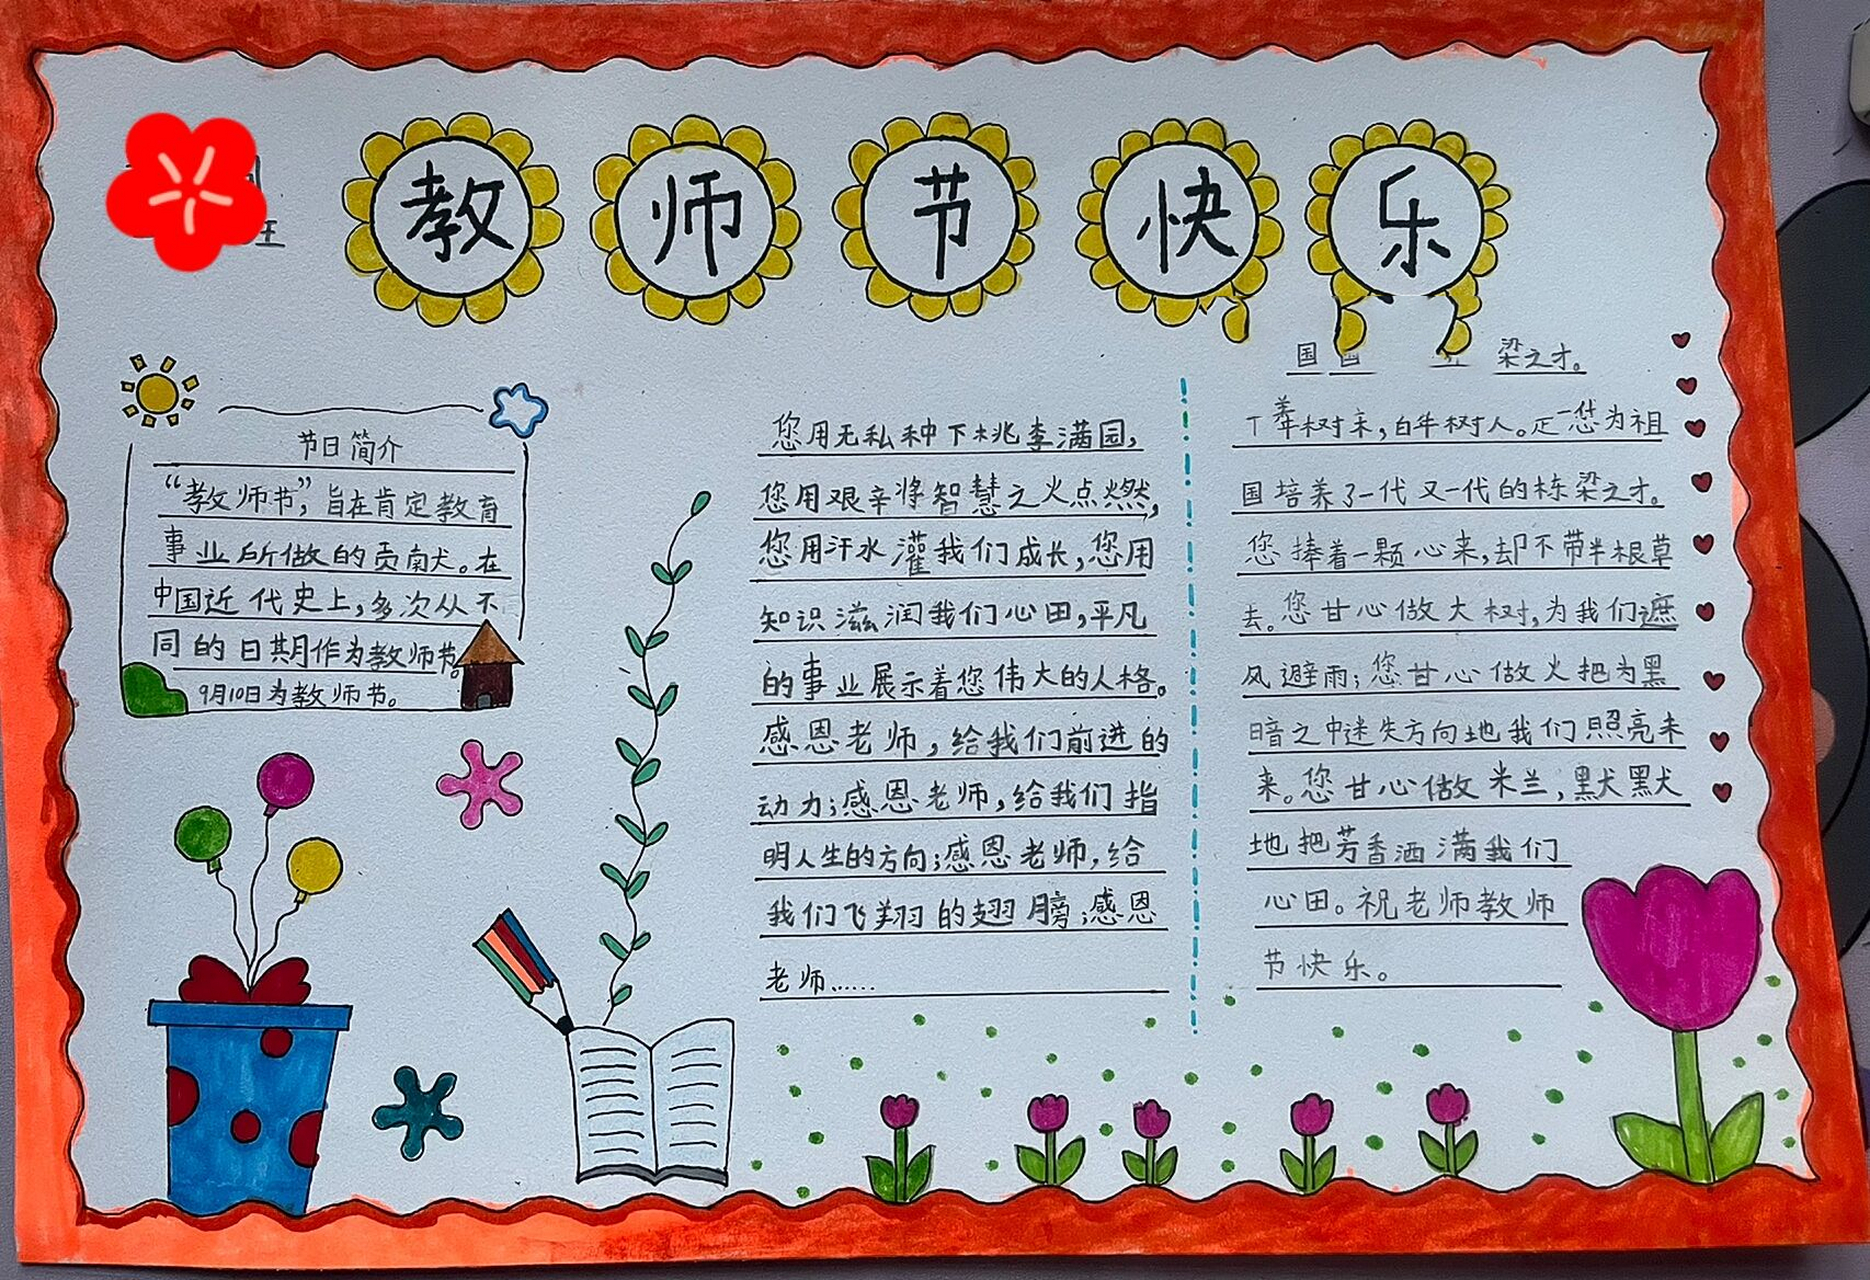 教师节快乐
节日简介
“教师节”，旨在肯定教育
事业所做的贡献。在
中国近代史上，多次从不
同的日期作为教师节。
9月10日为教师节。
您用无私种下桃李满园，
您用艰辛将智慧之火点燃，
您用汗水灌我们成长，您用
知识滋润我们心田，平凡
的事业展示着您伟大的人格。
感恩老师，给我们前进的
动力；感恩老师，给我们指
明人生的方向；感恩老师，给
我们飞翔的翅膀；感恩
老师……
国 梁之才。
树木，百年树人。是您为祖
国培养了一代又一代的栋梁之才。
您捧着一颗心来，却不带半根草
去。您甘心做大树，为我们遮
风避雨；您甘心做火把为黑
暗之中迷失方向地我们照亮未
来。您甘心做米兰，默默
地把芳香洒满我们
心田。祝老师教师
节快乐。